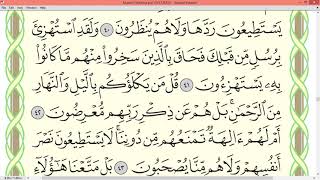 يَسْتَطِيعُونَ رَدَّهَا وَلَا هُمْ يُنظَرُونَ ٤٠ وَلَقَدِ ٱسْتُهْزِئَ
بِرُسُلٍ مِّن قَبْلِكَ فَحَاقَ بِٱلَّذِينَ سَخِرُوا۟ مِنْهُم مَّا كَانُوا۟
بِهِۦ يَسْتَهْزِءُونَ ٤١ قُلْ مَن يَكْلَؤُكُم بِٱلَّيْلِ وَٱلنَّهَارِ
مِنَ ٱلرَّحْمَٰنِ ۗ بَلْ هُمْ عَن ذِكْرِ رَبِّهِم مُّعْرِضُونَ ٤٢
أَمْ لَهُمْ ءَالِهَةٌ تَمْنَعُهُم مِّن دُونِنَا ۚ لَا يَسْتَطِيعُونَ نَصْرَ
أَنفُسِهِمْ وَلَا هُم مِّنَّا يُصْحَبُونَ ٤٣ بَلْ مَتَّعْنَا هَٰٓؤُلَآءِ